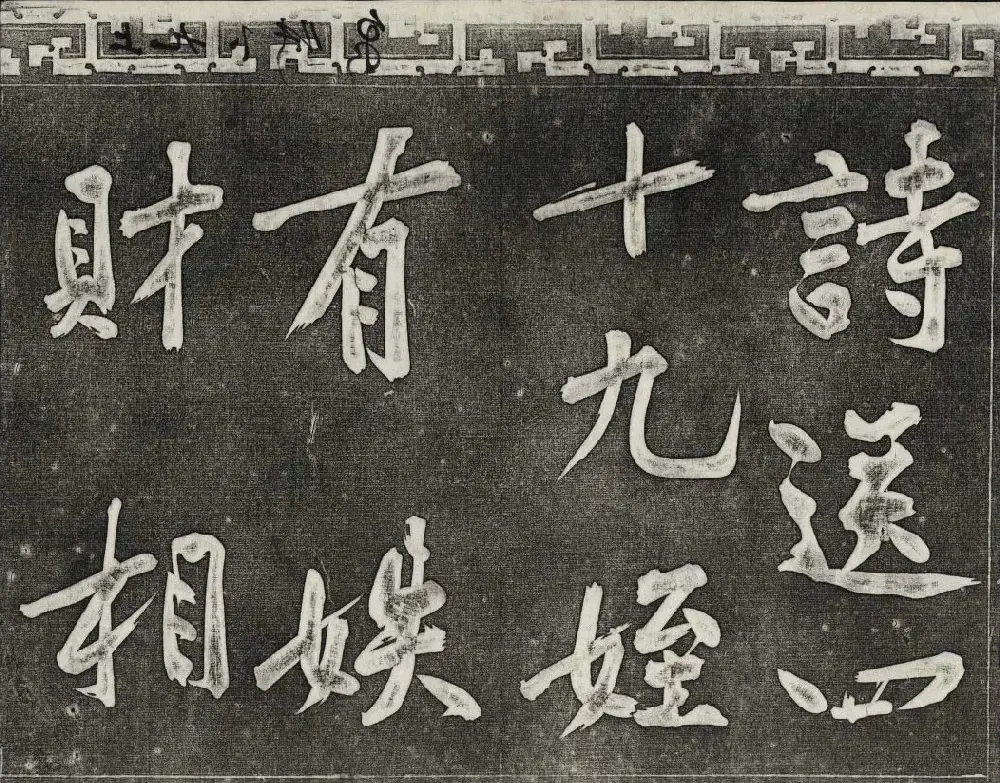 詩送四
十九姪
有
財相